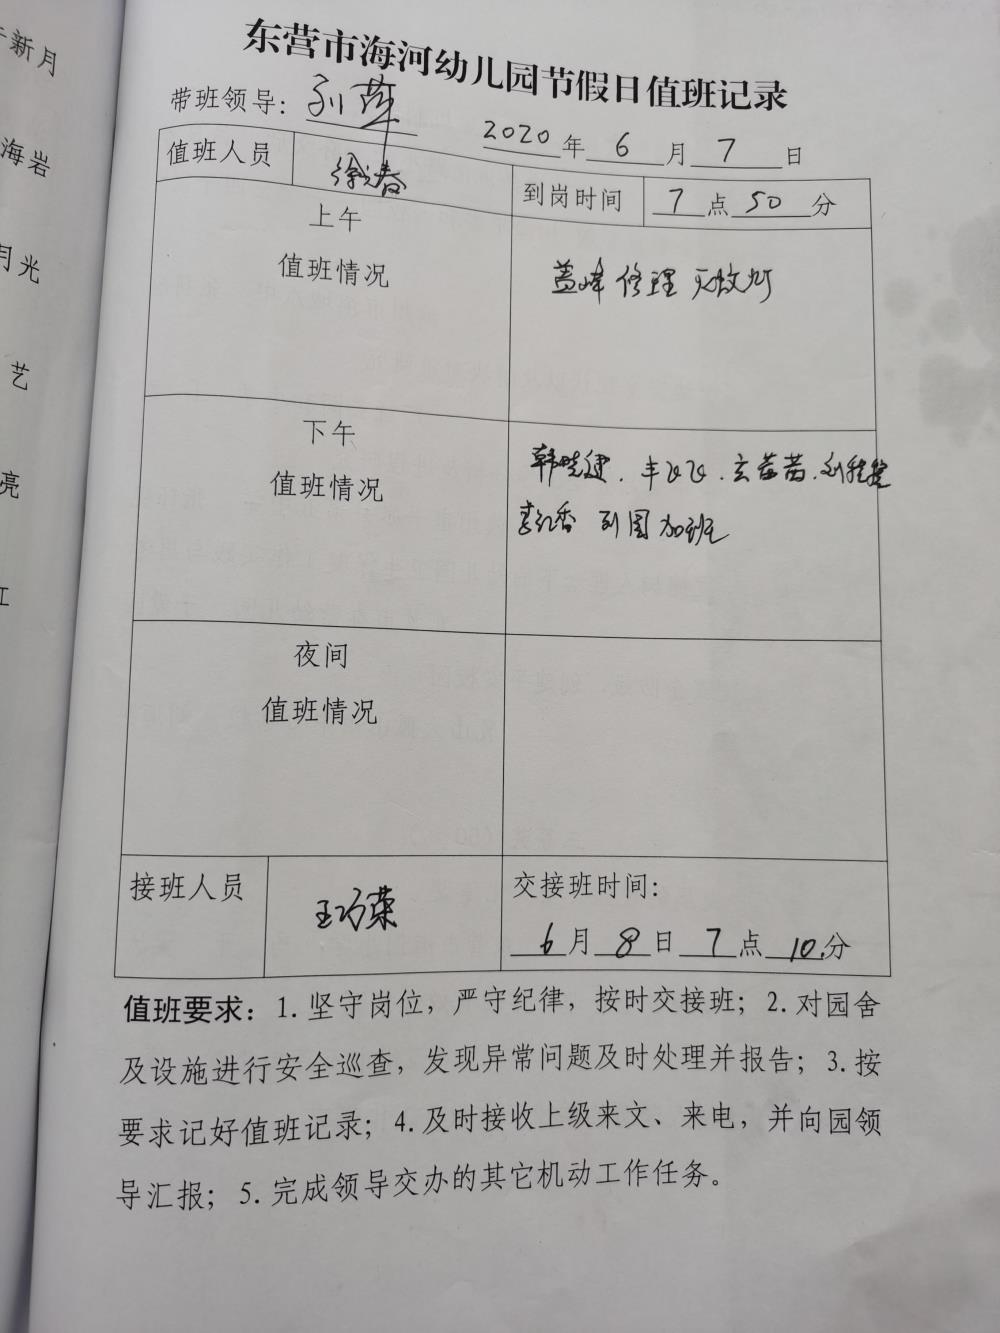 新月
海岩
月光
艺
亮
江
东营市海河幼儿园节假日值班记录
带班领导：孙萍
2020年6月7日
值班人员 徐 春 到岗时间 7点50分
上午
值班情况
盖峰 修理 灭蚊灯
下午
值班情况
韩晓建．丰飞飞．玄苗苗．刘
李红香 到园加班
夜间
值班情况
接班人员 王巧荣 交接班时间：
6月8日7点10分
值班要求：1.坚守岗位，严守纪律，按时交接班；2.对园舍
及设施进行安全巡查，发现异常问题及时处理并报告；3.按
要求记好值班记录；4.及时接收上级来文、来电，并向园领
导汇报；5.完成领导交办的其它机动工作任务。